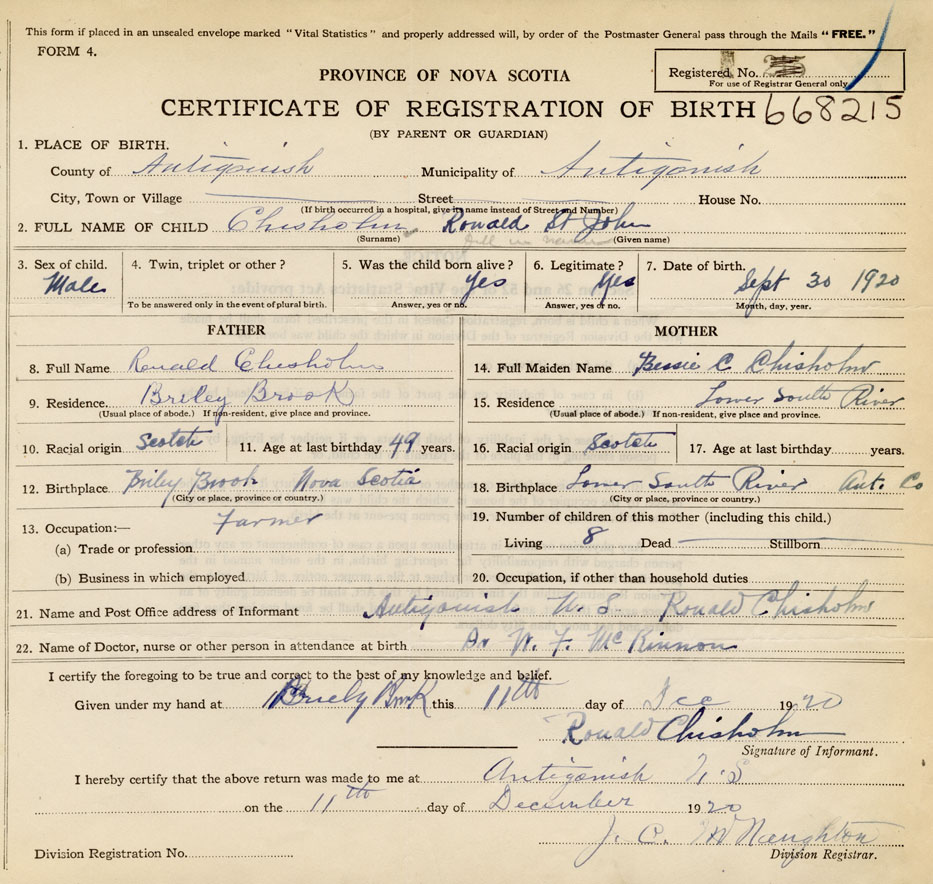 This form if placed in an unsealed envelope marked "Vital Statistics" and properly addressed will, by order of the Postmaster General pass through the Mails "FREE."
FORM 4.
Registered No.
For use of Registrar General only
PROVINCE OF NOVA SCOTIA
CERTIFICATE OF REGISTRATION OF BIRTH 668215
(BY PARENT OR GUARDIAN)
1. PLACE OF BIRTH.
County of Antigonish Municipality of Antigonish
City, Town or Village Street House No.
(If birth occurred in a hospital, give its name instead of Street and Number)
2. FULL NAME OF CHILD Chisholm Ronald St John
(Surname) (Given name)
3. Sex of child. 4. Twin, triplet or other? 5. Was the child born alive? 6. Legitimate? 7. Date of birth.
Male Yes Yes Sept 30 1920
To be answered only in the event of plural birth. Answer, yes or no. Answer, yes or no. Month, day, year.
FATHER MOTHER
8. Full Name Ronald Chisholm 14. Full Maiden Name Bessie C Chisholm
9. Residence. Briley Brook 15. Residence Lower South River
(Usual place of abode.) If non-resident, give place and province. (Usual place of abode.) If non-resident, give place and province.
10. Racial origin Scotch 11. Age at last birthday 49 years. 16. Racial origin Scotch 17. Age at last birthday years.
12. Birthplace Briley Brook Nova Scotia 18. Birthplace Lower South River Ant. Co
(City or place, province or country.) (City or place, province or country.)
13. Occupation:— Farmer 19. Number of children of this mother (including this child.)
(a) Trade or profession Living 8 Dead Stillborn
(b) Business in which employed 20. Occupation, if other than household duties
21. Name and Post Office address of Informant Antigonish N. S. Ronald Chisholm
22. Name of Doctor, nurse or other person in attendance at birth Dr W. F. McKinnon
I certify the foregoing to be true and correct to the best of my knowledge and belief.
Given under my hand at Briely Brook this 11th day of Dec 1920
Ronald Chisholm
Signature of Informant.
I hereby certify that the above return was made to me at Antigonish N.S
on the 11th day of December 1920
J. C. McNaughton
Division Registration No. Division Registrar.